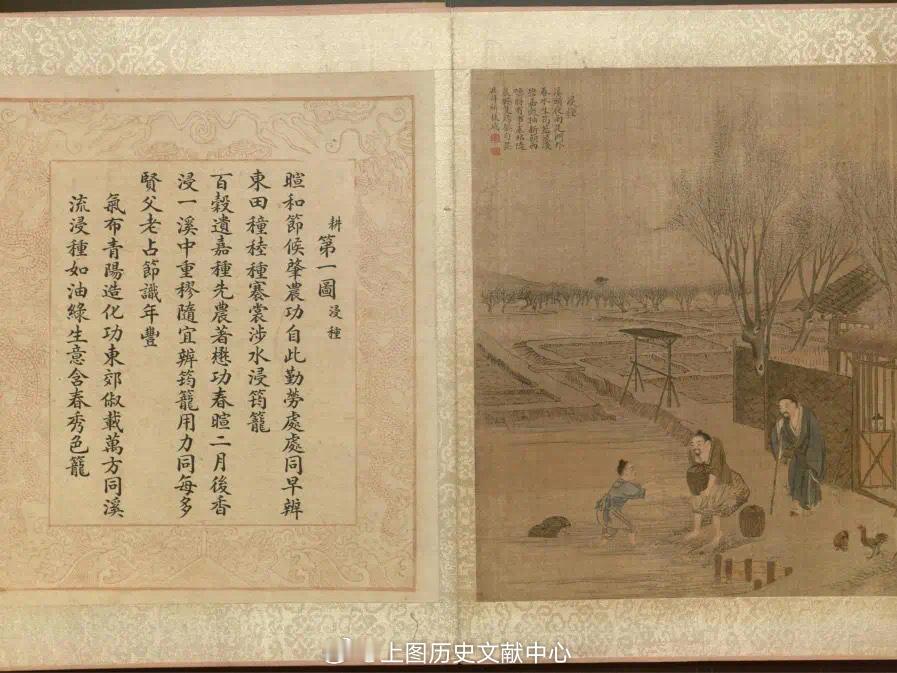 耕第一圖浸種
暄和節候肇農功自此勤勞處處同早辨
東田穜稑種褰裳涉水浸筠籠
百穀遺嘉種先農著懋功春暄二月後香
浸一溪中重穋隨宜辨筠籠用力同每多
賢父老占節識年豐
氣布青陽造化功東郊俶載萬方同溪
流浸種如油綠生意含春秀色籠
浸種
上图历史文献中心